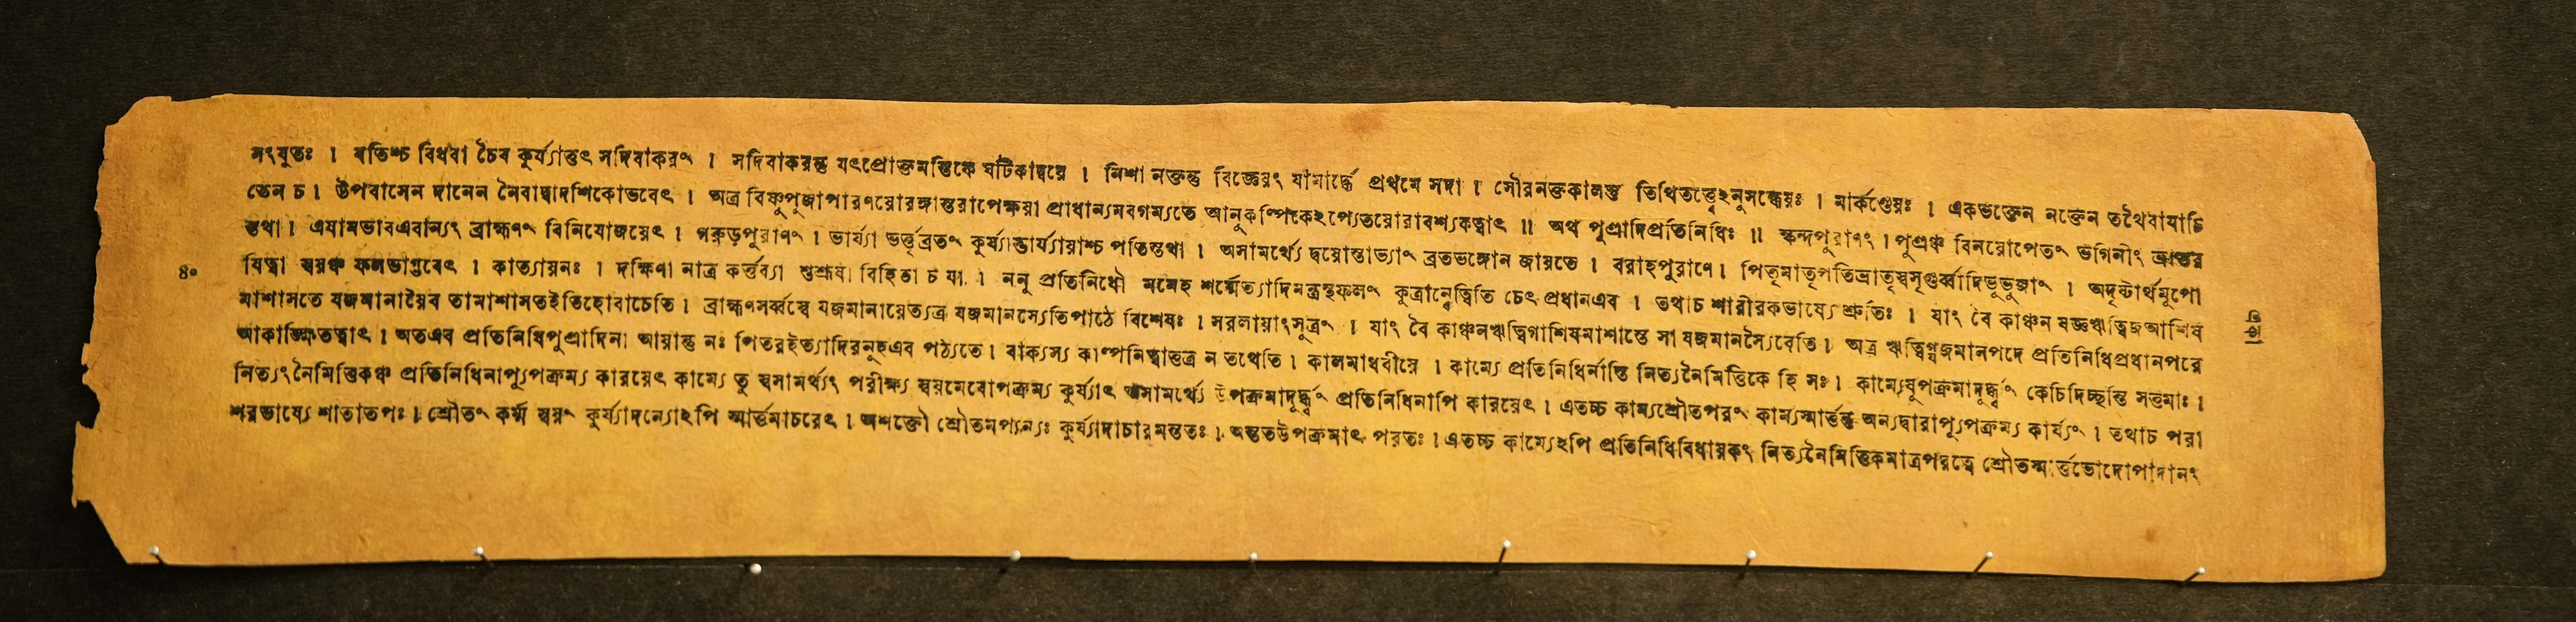 নংযুতঃ । যতিশ্চ বিধবা চৈব কুর্য্যাত্তৎ সদিবাকরং । সদিবাকরন্তু যৎপ্রোক্তমন্তিকে ঘটিকাদ্বয়ে । নিশা নক্তন্তু বিজ্ঞেয়ং যামার্দ্ধে প্রথমে সদা । সৌরনক্তকালস্তু তিথিতত্ত্বেঽনুসন্ধেয়ঃ । মার্কণ্ডেয়ঃ । একভক্তেন নক্তেন তথৈবাযাচি
তেন চ । উপবাসেন দানেন নৈবাদ্বাদশিকোভবেৎ । অত্র বিষ্ণুপূজাপারণয়োরঙ্গান্তরাপেক্ষয়া প্রাধান্যমবগম্যতে আনুকল্পিকেঽপ্যেতয়োরাবশ্যকত্বাৎ ॥ অথ পুত্রাদিপ্রতিনিধিঃ ॥ স্কন্দপুরাণং । পুত্রঞ্চ বিনয়োপেতং ভগিনীং ভ্রাতর
ন্তথা । এযামভাবএবান্যং ব্রাহ্মণং বিনিযোজয়েৎ । গরুড়পুরাণং । ভার্য্যা ভর্ত্তৃব্রতং কুর্য্যাদ্ভার্য্যায়াশ্চ পতিস্তথা । অসামর্থ্যে দ্বয়োস্তাভ্যাং ব্রতভঙ্গোন জায়তে । বরাহপুরাণে । পিতৃমাতৃপতিভ্রাতৃস্বসৃগুর্ব্বাদিভূভুজাং । অদৃষ্টার্থমুপো
৪০
ষিত্বা স্বয়ঞ্চ ফলভাগ্ভবেৎ । কাত্যায়নঃ । দক্ষিণা নাত্র কর্ত্তব্যা শুশ্রূষা বিহিতা চ যা । ননু প্রতিনিধৌ মমেহ শর্ম্মেত্যাদিমন্ত্রস্থফলং কুত্রান্বেত্বিতি চেৎ প্রধানএব । তথাচ শারীরকভাষ্যে শ্রুতিঃ । যাং বৈ কাঞ্চন যজ্ঞঋত্বিজআশিষ
মাশাসতে যজমানায়ৈব তামাশাসতইতিহোবাচেতি । ব্রাহ্মণসর্ব্বস্বে যজমানায়েত্যত্র যজমানস্যেতিপাঠে বিশেষঃ । সরলায়াংসূত্রং । যাং বৈ কাঞ্চনঋত্বিগাশিষমাশাস্তে সা যজমানস্যৈবেতি । অত্র ঋত্বিগ্যজমানপদে প্রতিনিধিপ্রধানপরে
আকাঙ্ক্ষিতত্বাৎ । অতএব প্রতিনিধিপুত্রাদিনা আয়ান্তু নঃ পিতরইত্যাদিরনূহএব পঠ্যতে । বাক্যস্য কাল্পনিত্বাত্তত্র ন তথেতি । কালমাধবীয়ে । কাম্যে প্রতিনিধির্নাস্তি নিত্যনৈমিত্তিকে হি সঃ । কাম্যেষুপক্রমাদূর্দ্ধ্বং কেচিদিচ্ছন্তি সত্তমাঃ ।
নিত্যংনৈমিত্তিকঞ্চ প্রতিনিধিনাপ্যুপক্রম্য কারয়েৎ কাম্যে তু স্বসামর্থ্যং পরীক্ষ্য স্বয়মেবোপক্রম্য কুর্য্যাৎ অসামর্থ্যে উপক্রমাদূর্দ্ধ্বং প্রতিনিধিনাপি কারয়েৎ । এতচ্চ কাম্যশ্রৌতপরং কাম্যস্মার্ত্তন্তু অন্যদ্বারাপ্যুপক্রম্য কার্য্যং । তথাচ পরা
শরভাষ্যে শাতাতপঃ । শ্রৌতং কর্ম্ম স্বয়ং কুর্য্যাদন্যোঽপি স্মার্ত্তমাচরেৎ । অশক্তৌ শ্রৌতমপ্যন্যঃ কুর্য্যাদাচারমন্ততঃ । অন্ততউপক্রমাৎ পরতঃ । এতচ্চ কাম্যেঽপি প্রতিনিধিবিধায়কং নিত্যনৈমিত্তিকমাত্রপরত্বে শ্রৌতস্মার্ত্তভেদোপাদানং